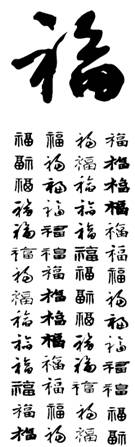 福
福福福福
福福福福
福福福福
福福福福
福福福福
福福福福
福福福福
福福福福
福福福福
福福福福
福福福福
福福福福
福福福福
福福福福